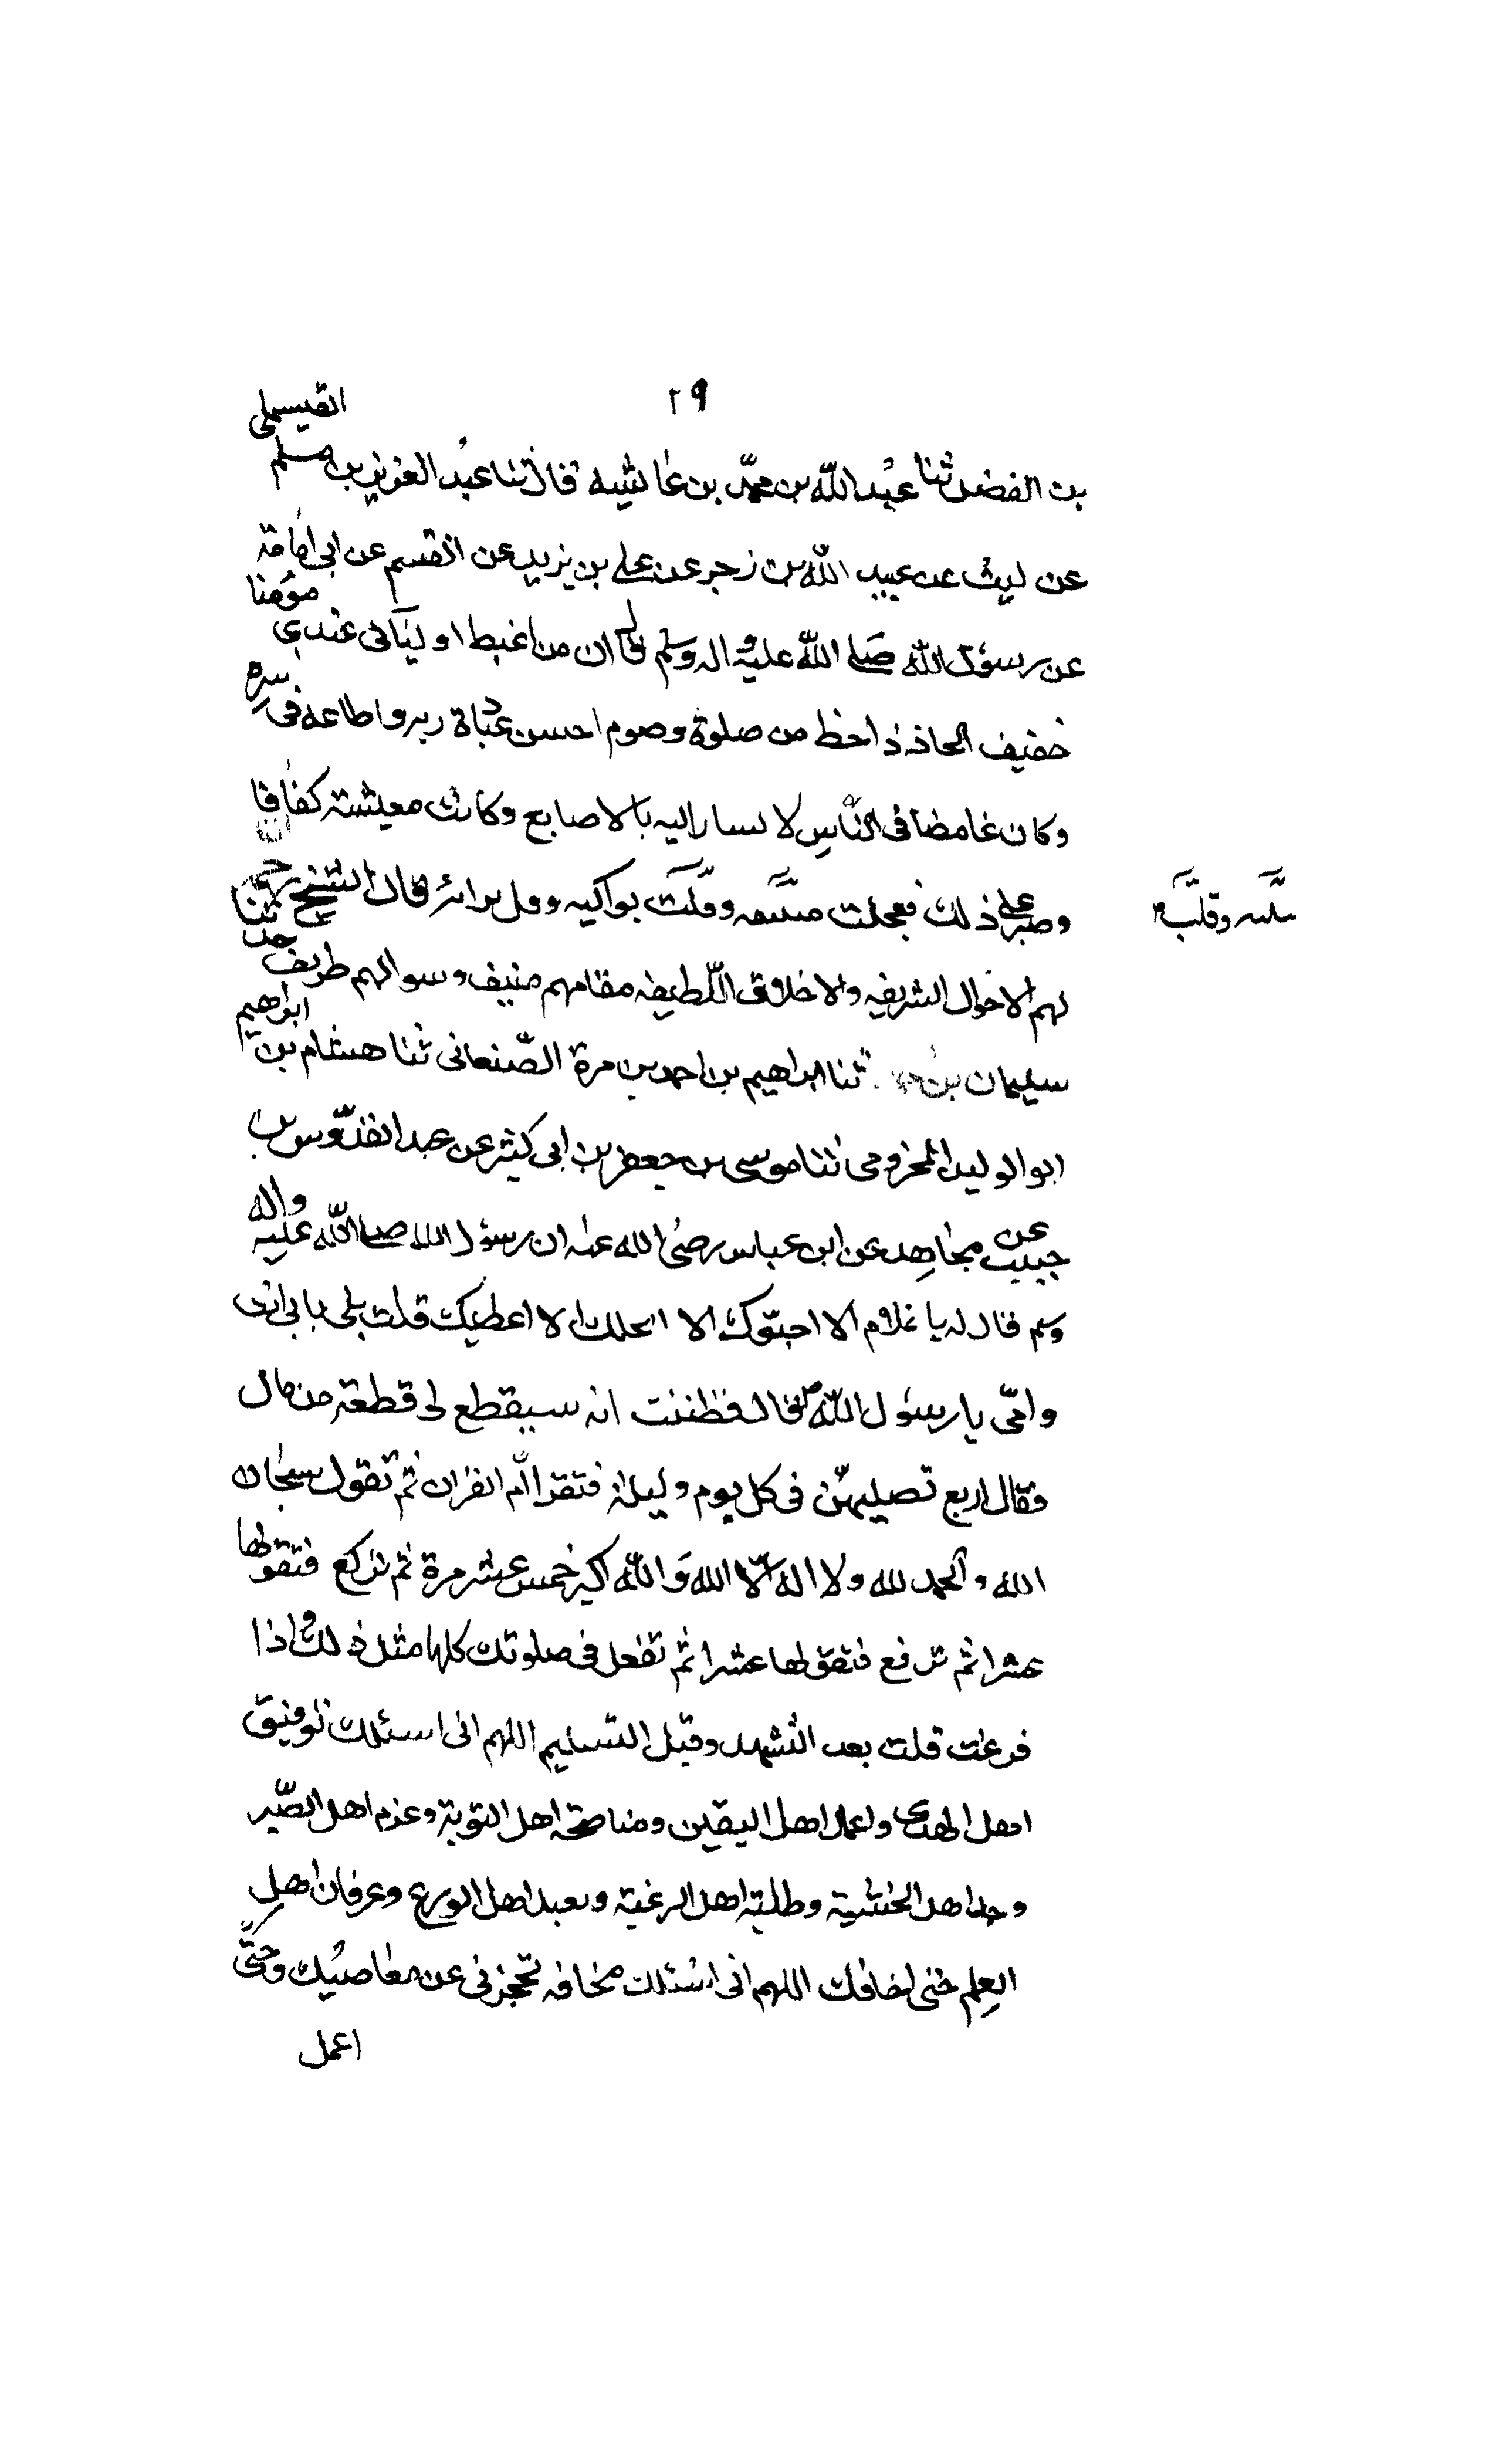 ٢٩
القيسملى
بن الفضل ثنا عبد الله بن محمد بن عائشه قال ثنا عبد العزيز بن مسلم
عن ليث عن عبيد الله بن زجر عن على بن يزيد عن القسم عن ابى امامة
عن رسول الله صلى الله عليه واله وسلم قال ان من اغبط اوليائى عندى مؤمنا
خفيف الحاذ ذا حظ من صلوة وصوم احسن عبادة ربه واطاعه فى سره
وكان غامضا فى الناس لا يشار اليه بالاصابع وكانت معيشته كفافا
وصبر على ذلك فعجلت منيته وقلت بواكيه وقل تراثه قال الشيخ
منيته وقلت
لهم الاحوال الشريفه والاخلاق اللطيفه مقامهم منيف وسوالهم طريف
سليمان بن ثنا ابراهيم بن احمد بن مرة الصنعانى ثنا هشام بن ابراهيم
ابو الوليد المخزومى ثنا موسى بن جعفر بن ابى كثير عن عبد القدوس بن
حبيب عن مجاهد عن ابن عباس رضى الله عنه ان رسول الله صلى الله عليه واله
وسلم قال له يا غلام الا احبوك الا انحلك الا اعطيك قلت بلى بابى انت
وامى يا رسول الله ص قال فظننت انه سيقطع لى قطعة من مال
فقال اربع تصليهن فى كل يوم وليلة فتقرا ام القران ثم تقول سبحان
الله والحمد لله ولا اله الا الله والله اكبر خمس عشر مرة ثم تركع فتقولها
عشرا ثم ترفع فتقولها عشرا ثم تفعل فى صلوتك كلها مثل ذلك واذا
فرغت قلت بعد التشهد وقبل التسليم اللهم انى اسئلك توفيق
اهل الهدى واعمال اهل اليقين ومناصحة اهل التوبة وعزم اهل الصبر
وجد اهل الخشية وطلبة اهل الرغبة وتعبد اهل الورع وعرفان اهل
العلم حتى اخافك اللهم انى اسئلك مخافه تحجزنى عن معاصيك وحتى
اعمل